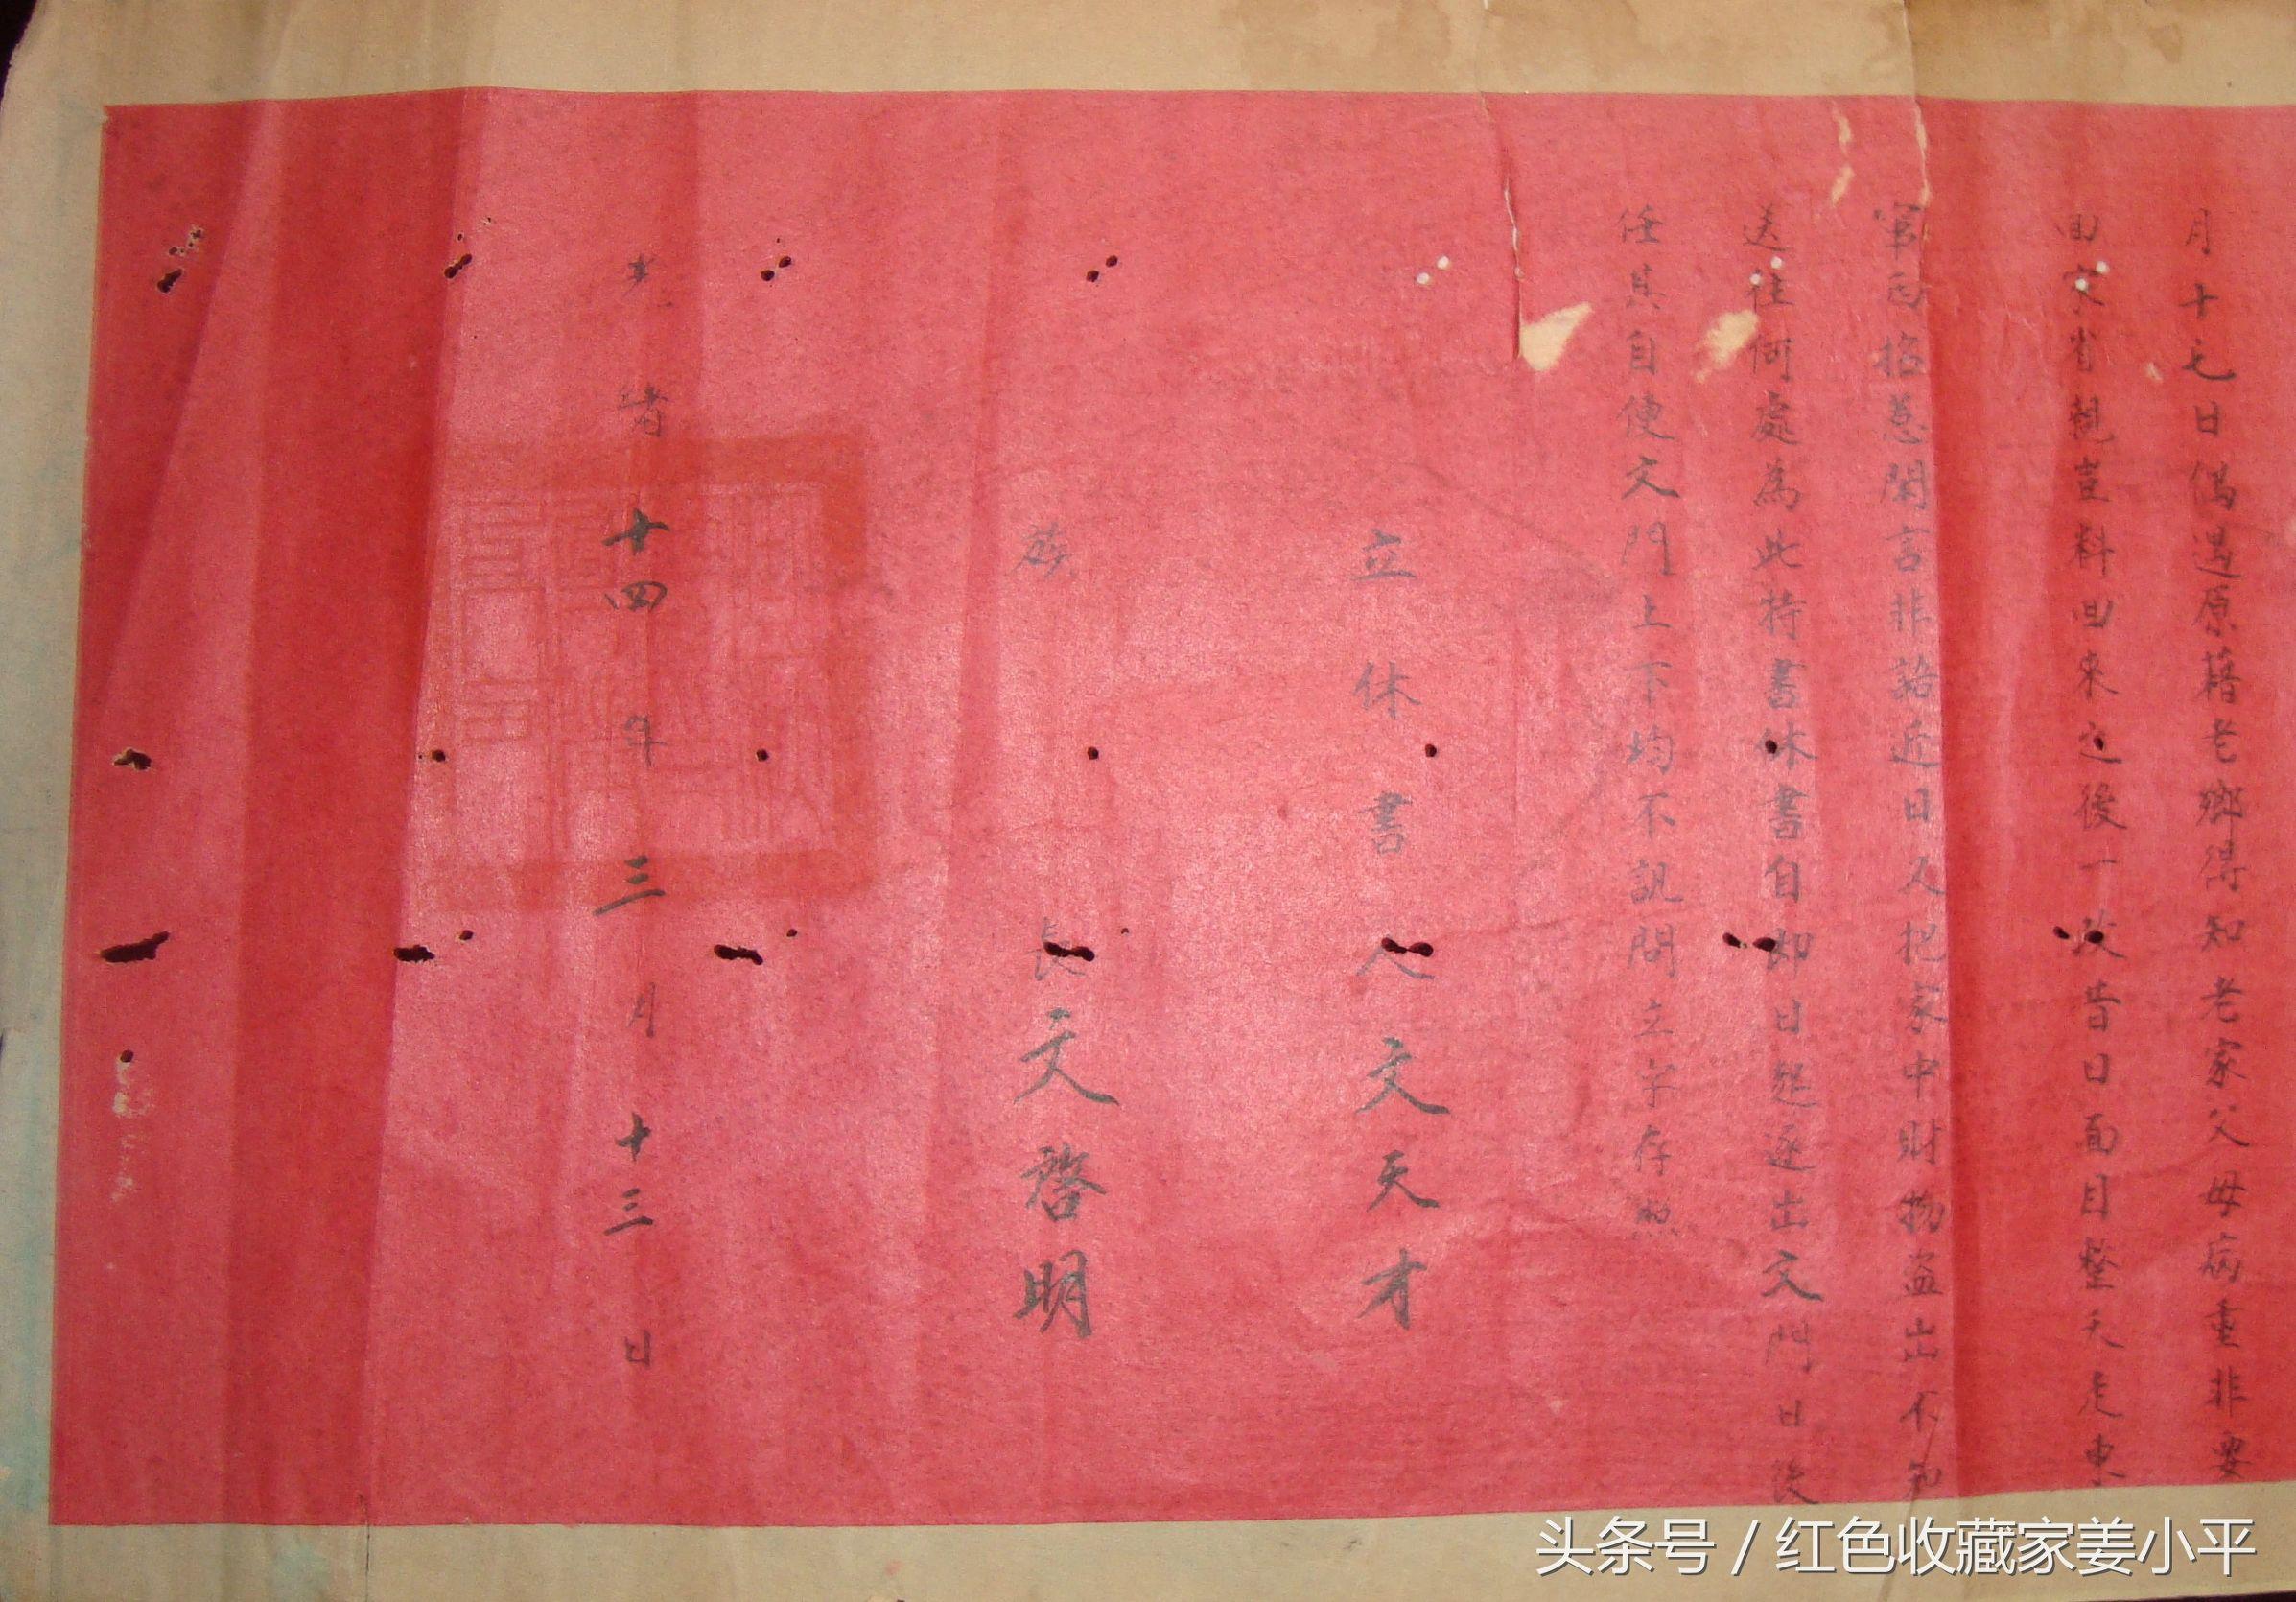 月十七日偶遇原藉老鄉得知老家父母病重非要
回家省親豈料回來之後一改昔日面目整天走東
西招惹閑言非語近日人把家中財物盗出不知
送往何處為此特書休書自即日起逐出文門日後
任其自便文門上下均不訊問立字存照
立休書人文天才
族長文啓明
光緒十四年三月十三日
头条号/红色收藏家姜小平